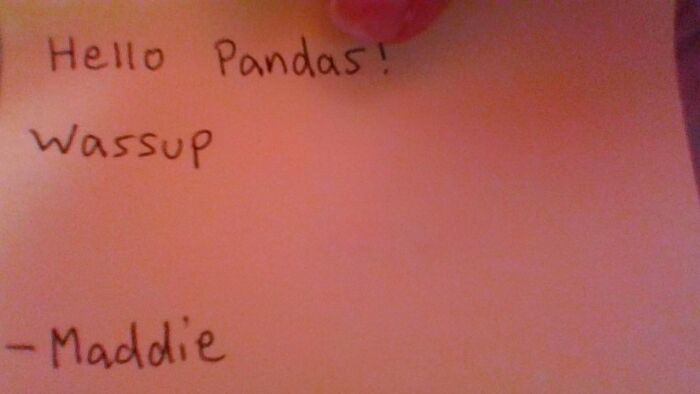 Hello Pandas!
Wassup
- Maddie